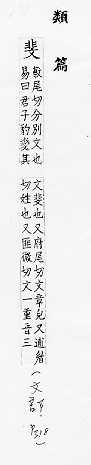 類篇
斐
敷尾切分別文也
易曰君子豹變其
文斐也又府尾切文章皃又逋眉
切姓也又匪微切文一重音三
(文部
P318